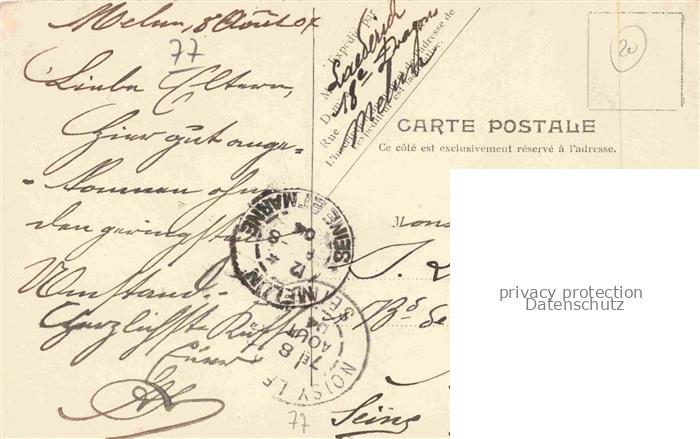 Melun, 8 Août 04
77
Liebe Eltern,
Hier gut ange-
-kommen ohne
den geringsten
Umstand.
Herzlichste Grüsse
Euer
Expédié par
M
Dem
Rue
18e Dragons
Melun
20
CARTE POSTALE
Ce côté est exclusivement réservé à l'adresse.
Mons
Seine
77
MELUN
SEINE ET MARNE
12
8
04
NOISY LE SEC
7E 8
AOUT
04
privacy protection
Datenschutz